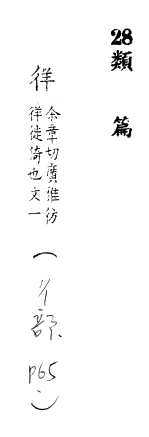 28類篇
徉
余章切廣雅彷
徉徙倚也文一
(彳部P65)